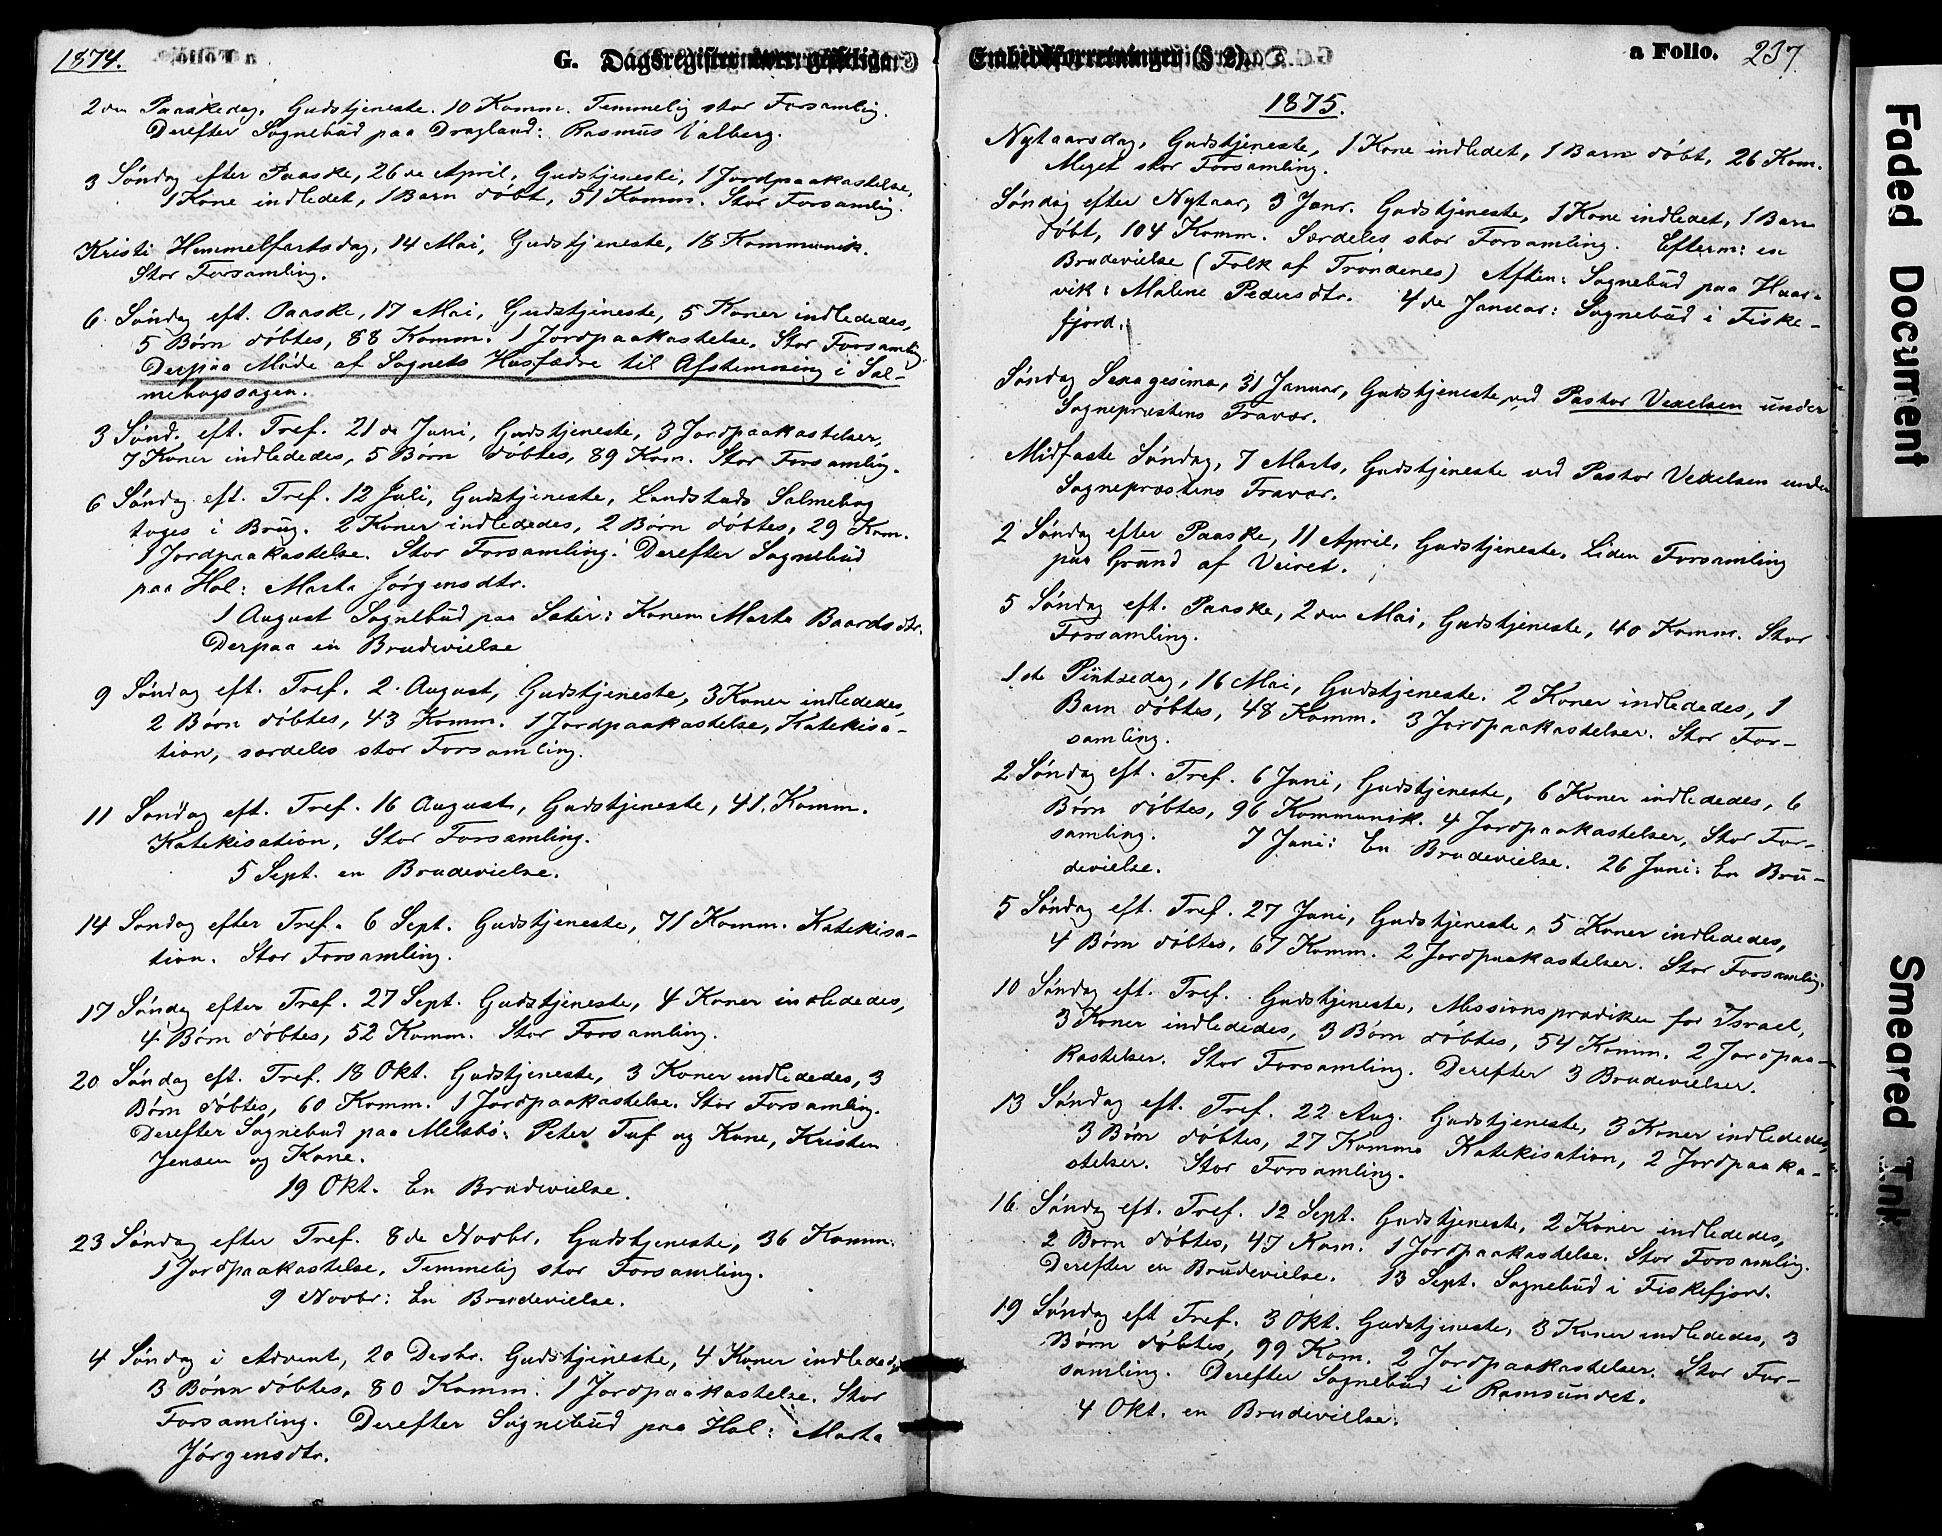 1874.
G. Dagsregister over geistlige
2den Paaskedag, Gudstjeneste. 10 Komm. Temmelig stor Forsamlig.
Derefter Sognebud paa Dragland: Rasmus Valberg.
3 Søndag efter Paaske, 26de April, Gudstjeneste, 1 Jordpaakastelse,
1 Kone indledet, 1 Barn døbt, 51 Komm. Stor Forsamlig.
Kristi Himmelfartsdag, 14 Mai, Gudstjeneste, 18 Kommunik.
Stor Forsamling.
6 Søndag eft. Paaske, 17 Mai, Gudstjeneste, 5 Koner indlededes,
5 Børn døbtes, 88 Komm. 1 Jordpaakastelse. Stor Forsamlig.
Derpaa Møde af Sognets Husfædre til Afstemning i Sal-
mebogssagen.
3 Sønd. eft. Tref. 21de Juni, Gudstjeneste, 3 Jordpaakastelser,
7 Koner indlededes, 5 Børn døbtes, 89 Kom. Stor Forsamlig.
6 Søndag eft. Tref. 12 Juli, Gudstjeneste, Landstads Salmebog
toges i Brug. 2 Koner indlededes, 2 Børn døbtes, 29 Kom.
1 Jordpaakastelse. Stor Forsamling. Derefter Sognebud
paa Hol: Marta Jørgensdtr.
1 August Sognebud paa Sæter: Konen Marta Baardsdtr.
Derpaa en Brudevielse
9 Søndag eft. Tref. 2. August, Gudstjeneste, 3 Koner indlededes,
2 Børn døbtes, 43 Komm. 1 Jordpaakastelse, Katekisa-
tion, særdeles stor Forsamling.
11 Søndag eft. Tref. 16 August, Gudstjeneste, 41. Komm.
Katekisation, Stor Forsamling.
5 Sept. en Brudevielse.
14 Søndag efter Tref. 6 Sept. Gudstjeneste, 71 Komm. Katekisa-
tion. Stor Forsamling.
17 Søndag efter Tref. 27 Sept. Gudstjeneste, 4 Koner indlededes,
4 Børn døbtes, 52 Komm. Stor Forsamling.
20 Søndag eft. Tref. 18 Okt. Gudstjeneste, 3 Koner indlededes, 3
Børn døbtes, 60 Komm. 1 Jordpaakastelse. Stor Forsamling.
Derefter Sognebud paa Melsbø: Peter Tuf og Kone, Kristen
Jensen og Kone.
19 Okt. En Brudevielse.
23 Søndag efter Tref. 8de Novbr. Gudstjeneste, 36 Komm.
1 Jordpaakastelse, Temmelig stor Forsamling.
9 Novbr: En Brudevielse.
4 Søndag i Advent, 20 Desbr. Gudstjeneste, 4 Koner indlededes,
3 Børn døbtes, 80 Komm. 1 Jordpaakastelse. Stor
Forsamling. Derefter Sognebud paa Hol: Marta
Jørgensdtr.
Embedsforretninger (§ 2).
a Folio. 237
1875.
Nytaarsdag, Gudstjeneste, 1 Kone indledet, 1 Barn døbt, 26 Kom.
Meget stor Forsamling.
Søndag efter Nytaar, 3 Janr. Gudstjeneste, 1 Kone indledet, 1 Barn
døbt, 104 Komm. Særdeles stor Forsamling. Efterm: en
Brudevielse (Folk af Trondenes) Aften: Sognebud paa Haar-
vik: Malene Pedersdtr. 4de Januar: Sognebud i Fiske-
fjord.
Søndag Sexagesima, 31 Januar, Gudstjeneste ved Pastor Vexelsen under
Sognepræstens Fravær.
Midfaste Søndag, 7 Marts, Gudstjeneste ved Pastor Vexelsen under
Sognepræstens Fravær.
2 Søndag efter Paaske, 11 April, Gudstjeneste. Liden Forsamling
paa Grund af Veiret.
5 Søndag eft. Paaske, 2den Mai, Gudstjeneste, 40 Komm. Stor
Forsamling.
1ste Pintsedag, 16 Mai, Gudstjeneste. 2 Koner indlededes, 1
Barn døbtes, 48 Komm. 3 Jordpaakastelser. Stor For-
samling.
2 Søndag eft. Tref. 6 Juni, Gudstjeneste, 6 Koner indlededes, 6
Børn døbtes, 96 Kommunik. 4 Jordpaakastelser, Stor For-
samling. 7 Juni: En Brudevielse. 26 Juni: En Bru-
devielse.
5 Søndag eft. Tref. 27 Juni, Gudstjeneste, 5 Koner indlededes,
4 Børn døbtes, 67 Komm. 2 Jordpaakastelser. Stor Forsamlig.
10 Søndag eft. Tref. Gudstjeneste, Missionsprædiken for Israel,
3 Koner indlededes, 3 Børn døbtes, 54 Komm. 2 Jordpaa-
kastelser. Stor Forsamling. Derefter 3 Brudevielser.
13 Søndag eft. Tref. 22 Aug. Gudstjeneste, 3 Koner indlededes,
3 Børn døbtes, 27 Komm. Katekisation, 2 Jordpaaka-
stelser. Stor Forsamling.
16 Søndag eft. Tref. 12 Sept. Gudstjeneste, 2 Koner indlededes,
2 Børn døbtes, 47 Kom. 1 Jordpaakastelse. Stor Forsamlig.
Derefter en Brudevielse. 13 Sept. Sognebud i Fiskefjord.
19 Søndag eft Tref. 3 Okt. Gudstjeneste, 3 Koner indlededes, 3
Børn døbtes, 99 Kom. 2 Jordpaakastelser. Stor For-
samling. Derefter Sognebud i Ramsundet.
4 Okt. en Brudevielse.
Faded Document
Smeared Ink